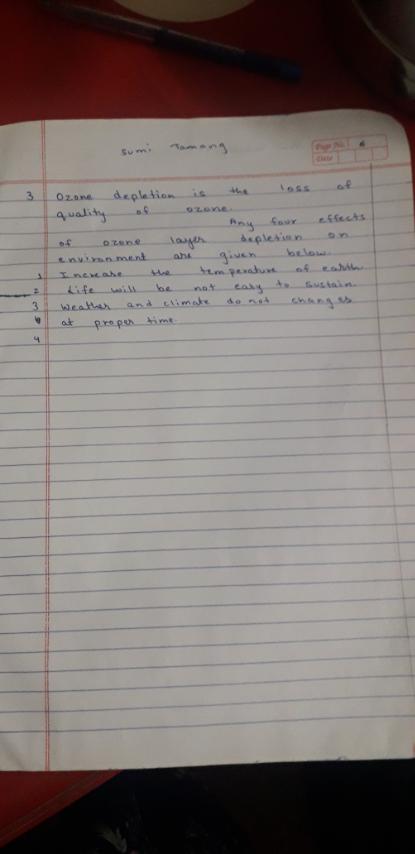 Sumi Tamang
Page No. 6
Date
3 Ozone depletion is the loss of
quality of ozone.
Any four effects
of ozone layer depletion on
environment are given below.
1 Increase the temperature of earth.
2 Life will be not easy to sustain.
3 Weather and climate do not changes
at proper time.
4